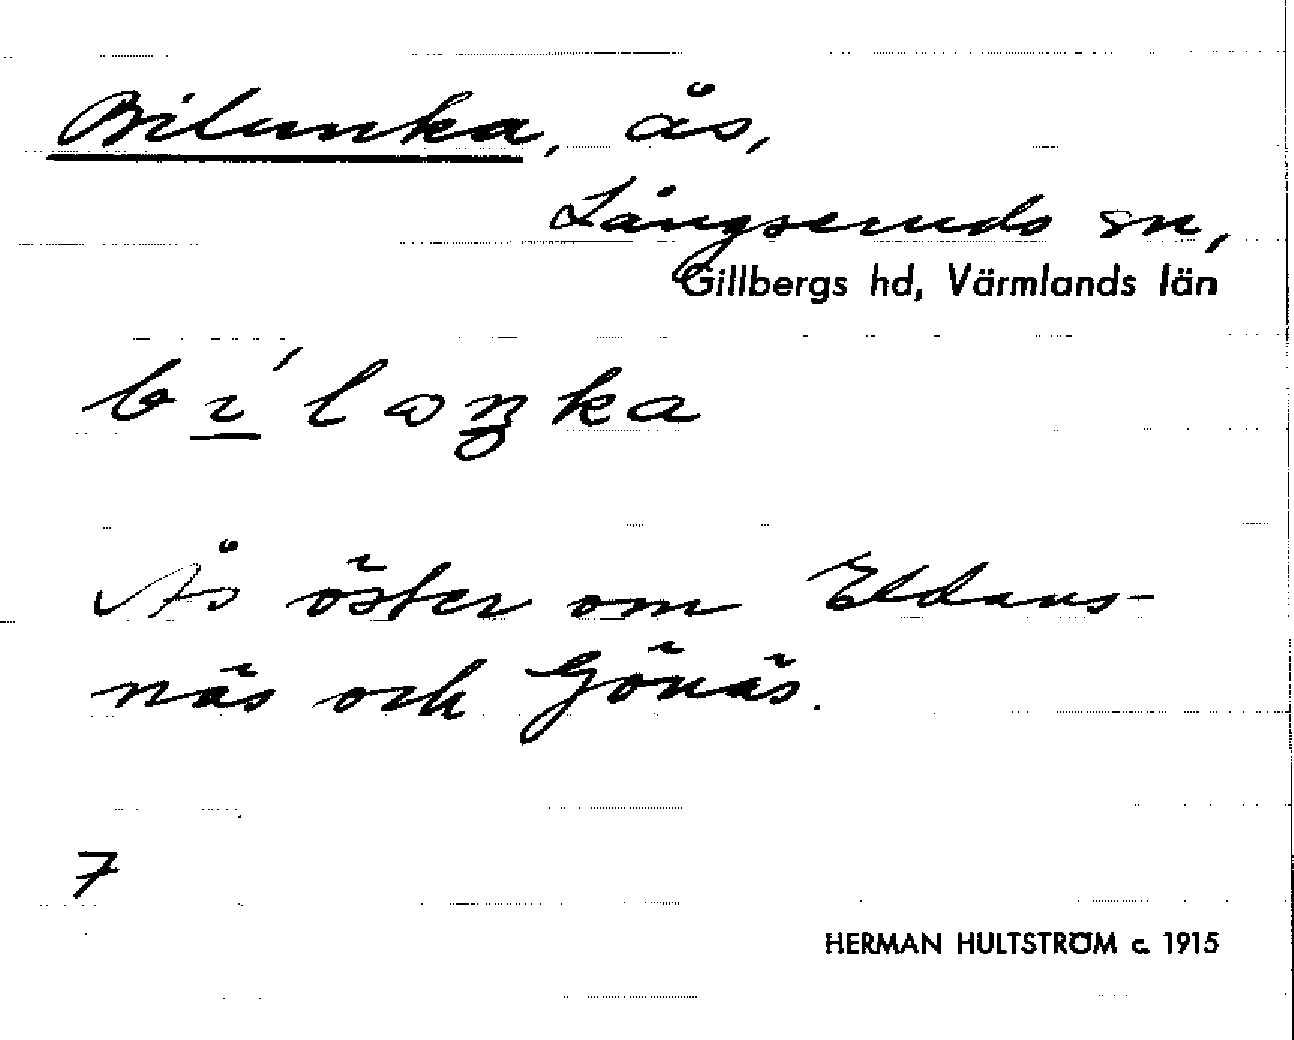 Bilunka, ås,
Långseruds sn,
Gillbergs hd, Värmlands län
bi´lωŋka
Ås öster om Eldans-
näs och Gönäs.
7
HERMAN HULTSTRÖM c. 1915